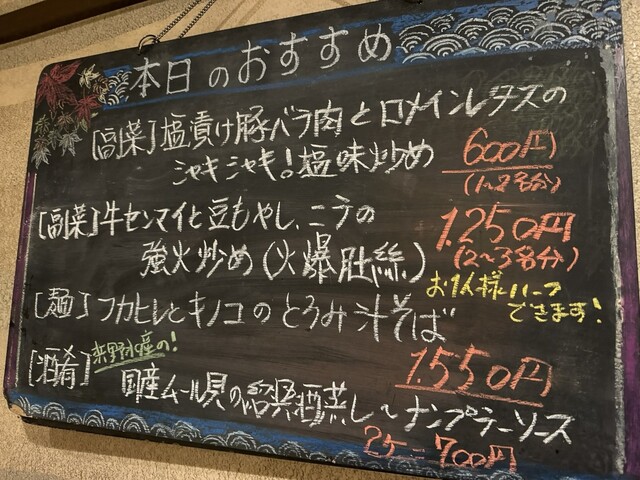 本日のおすすめ
[副菜]塩漬け豚バラ肉とロメインレタスの
シャキシャキ!塩味炒め 600円
(1~2名分)
[副菜]牛センマイと豆もやし、ニラの 1.250円
強火炒め(火爆肚絲) (2~3名分)
お1人様ハーフ
できます!
[麺]フカヒレとキノコのとろみ汁そば
1.550円
[酒肴] 産の!
国産ムール貝の紹興酒蒸し~ナンプラーソース
2ケ-700円